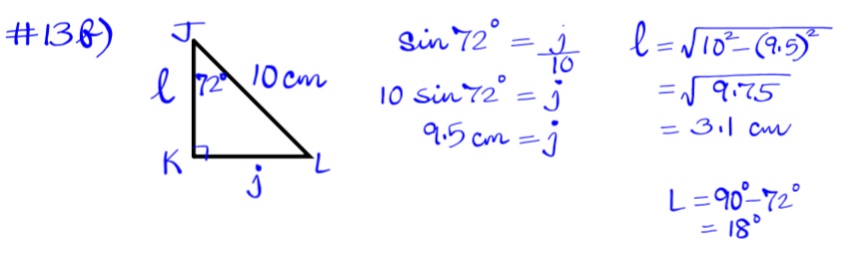 #13b)
J
l 72° 10 cm
K j L
sin 72° = j/10
10 sin 72° = j
9.5 cm = j
l = √10² - (9.5)²
= √9.75
= 3.1 cm
L = 90° - 72°
= 18°